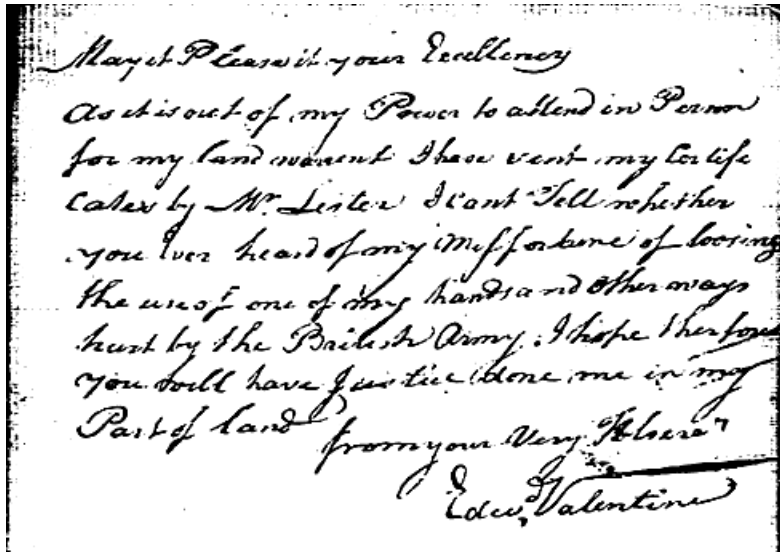 May it Please it your Excellency
As it is out of my Power to attend in Person
for my land warent I have sent my Certife
Cates by Mr. Lester I cant Tell whether
you Ever heard of my Missfortune of loosing
the use of one of my hands and other ways
hurt by the British Army. I hope therfore
you will have Justice done me in my
Part of land
from your Very Hl serv
Edwd. Valentine